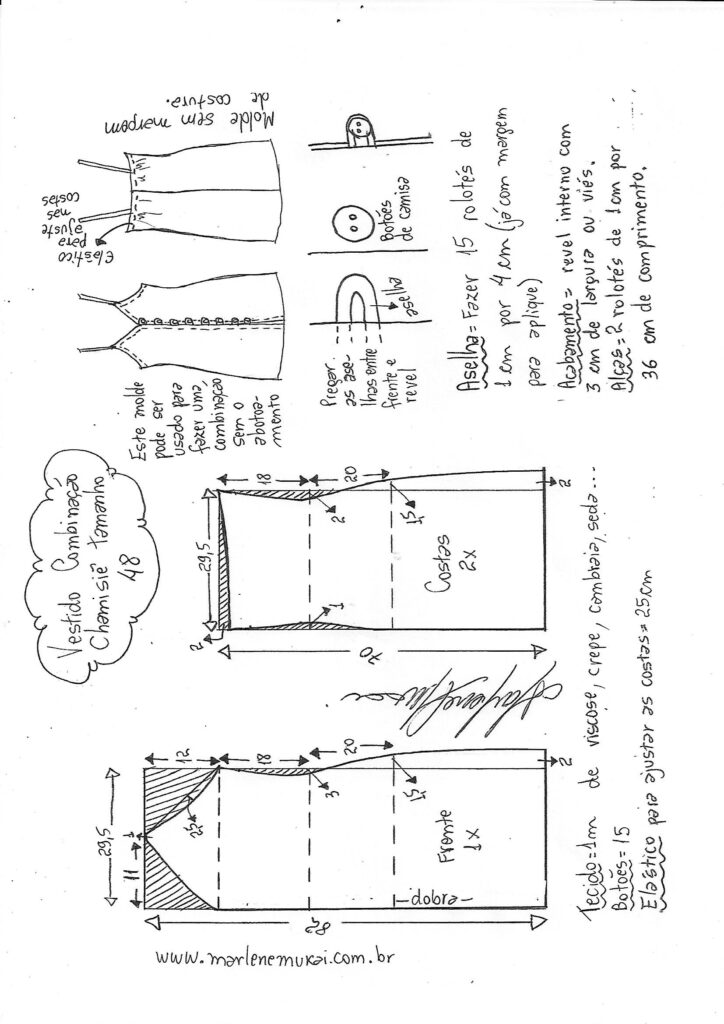 www.marlenemukai.com.br
Vestido Combinação
Chamisiê tamanho
48
Este molde
pode ser
usado para
fazer uma
combinação
sem o
abotoa-
mento
Elástico
para
ajuste
nas
costas
Molde sem margem
de costura.
29,5
11
1
2,5
12
18
20
3
1,5
2
82
Frente
1x
—dobra—
29,5
2
18
20
1
2
1,5
2
70
Costas
2x
Pregar
as ase-
lhas entre
frente e
revel
aselha
Botões
de camisa
Aselha = Fazer 15 rolotés de
1 cm por 4 cm (já com margem
para aplique)
Acabamento = revel interno com
3 cm de largura ou viés.
Alças = 2 rolotés de 1 cm por
36 cm de comprimento.
Tecido = 1m de viscose, crepe, cambraia, seda...
Botões = 15
Elástico para ajustar as costas = 25cm